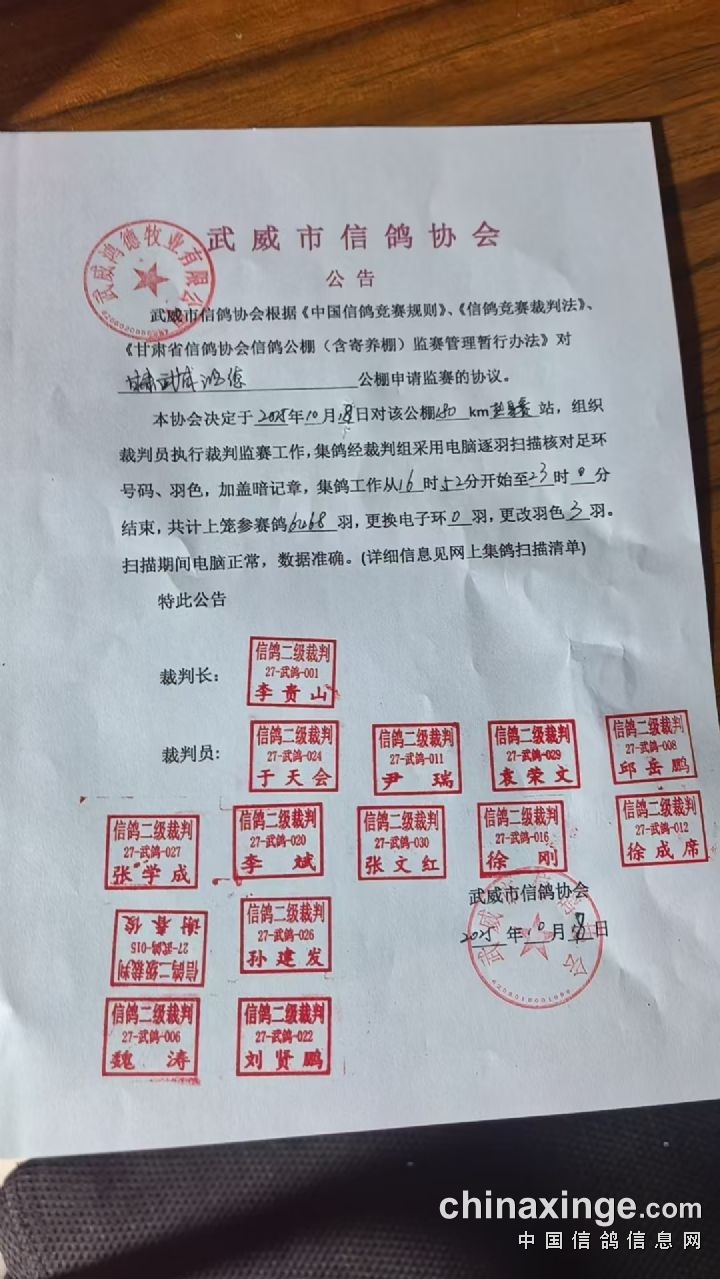 武威市信鸽协会
公告
武威鸿德牧业有限公司
武威市信鸽协会根据《中国信鸽竞赛规则》、《信鸽竞赛裁判法》、
《甘肃省信鸽协会信鸽公棚（含寄养棚）监赛管理暂行办法》对
甘肃武威鸿德 公棚申请监赛的协议。
本协会决定于2025年10月8日对该公棚180 km 站，组织
裁判员执行裁判监赛工作，集鸽经裁判组采用电脑逐羽扫描核对足环
号码、羽色，加盖暗记章，集鸽工作从16时52分开始至23时0分
结束，共计上笼参赛鸽6468羽，更换电子环0羽，更改羽色3羽。
扫描期间电脑正常，数据准确。(详细信息见网上集鸽扫描清单)
特此公告
裁判长：
信鸽二级裁判
27-武鸽-001
李贵山
裁判员：
信鸽二级裁判
27-武鸽-024
于天会
信鸽二级裁判
27-武鸽-011
尹瑞
信鸽二级裁判
27-武鸽-029
袁荣文
信鸽二级裁判
27-武鸽-008
邱岳鹏
信鸽二级裁判
27-武鸽-027
张学成
信鸽二级裁判
27-武鸽-020
李斌
信鸽二级裁判
27-武鸽-030
张文红
信鸽二级裁判
27-武鸽-016
徐刚
信鸽二级裁判
27-武鸽-012
徐成席
信鸽二级裁判
27-武鸽-015
谢春俊
信鸽二级裁判
27-武鸽-026
孙建发
信鸽二级裁判
27-武鸽-006
魏涛
信鸽二级裁判
27-武鸽-022
刘贤鹏
武威市信鸽协会
2025年10月8日
chinaxinge.com
中国信鸽信息网